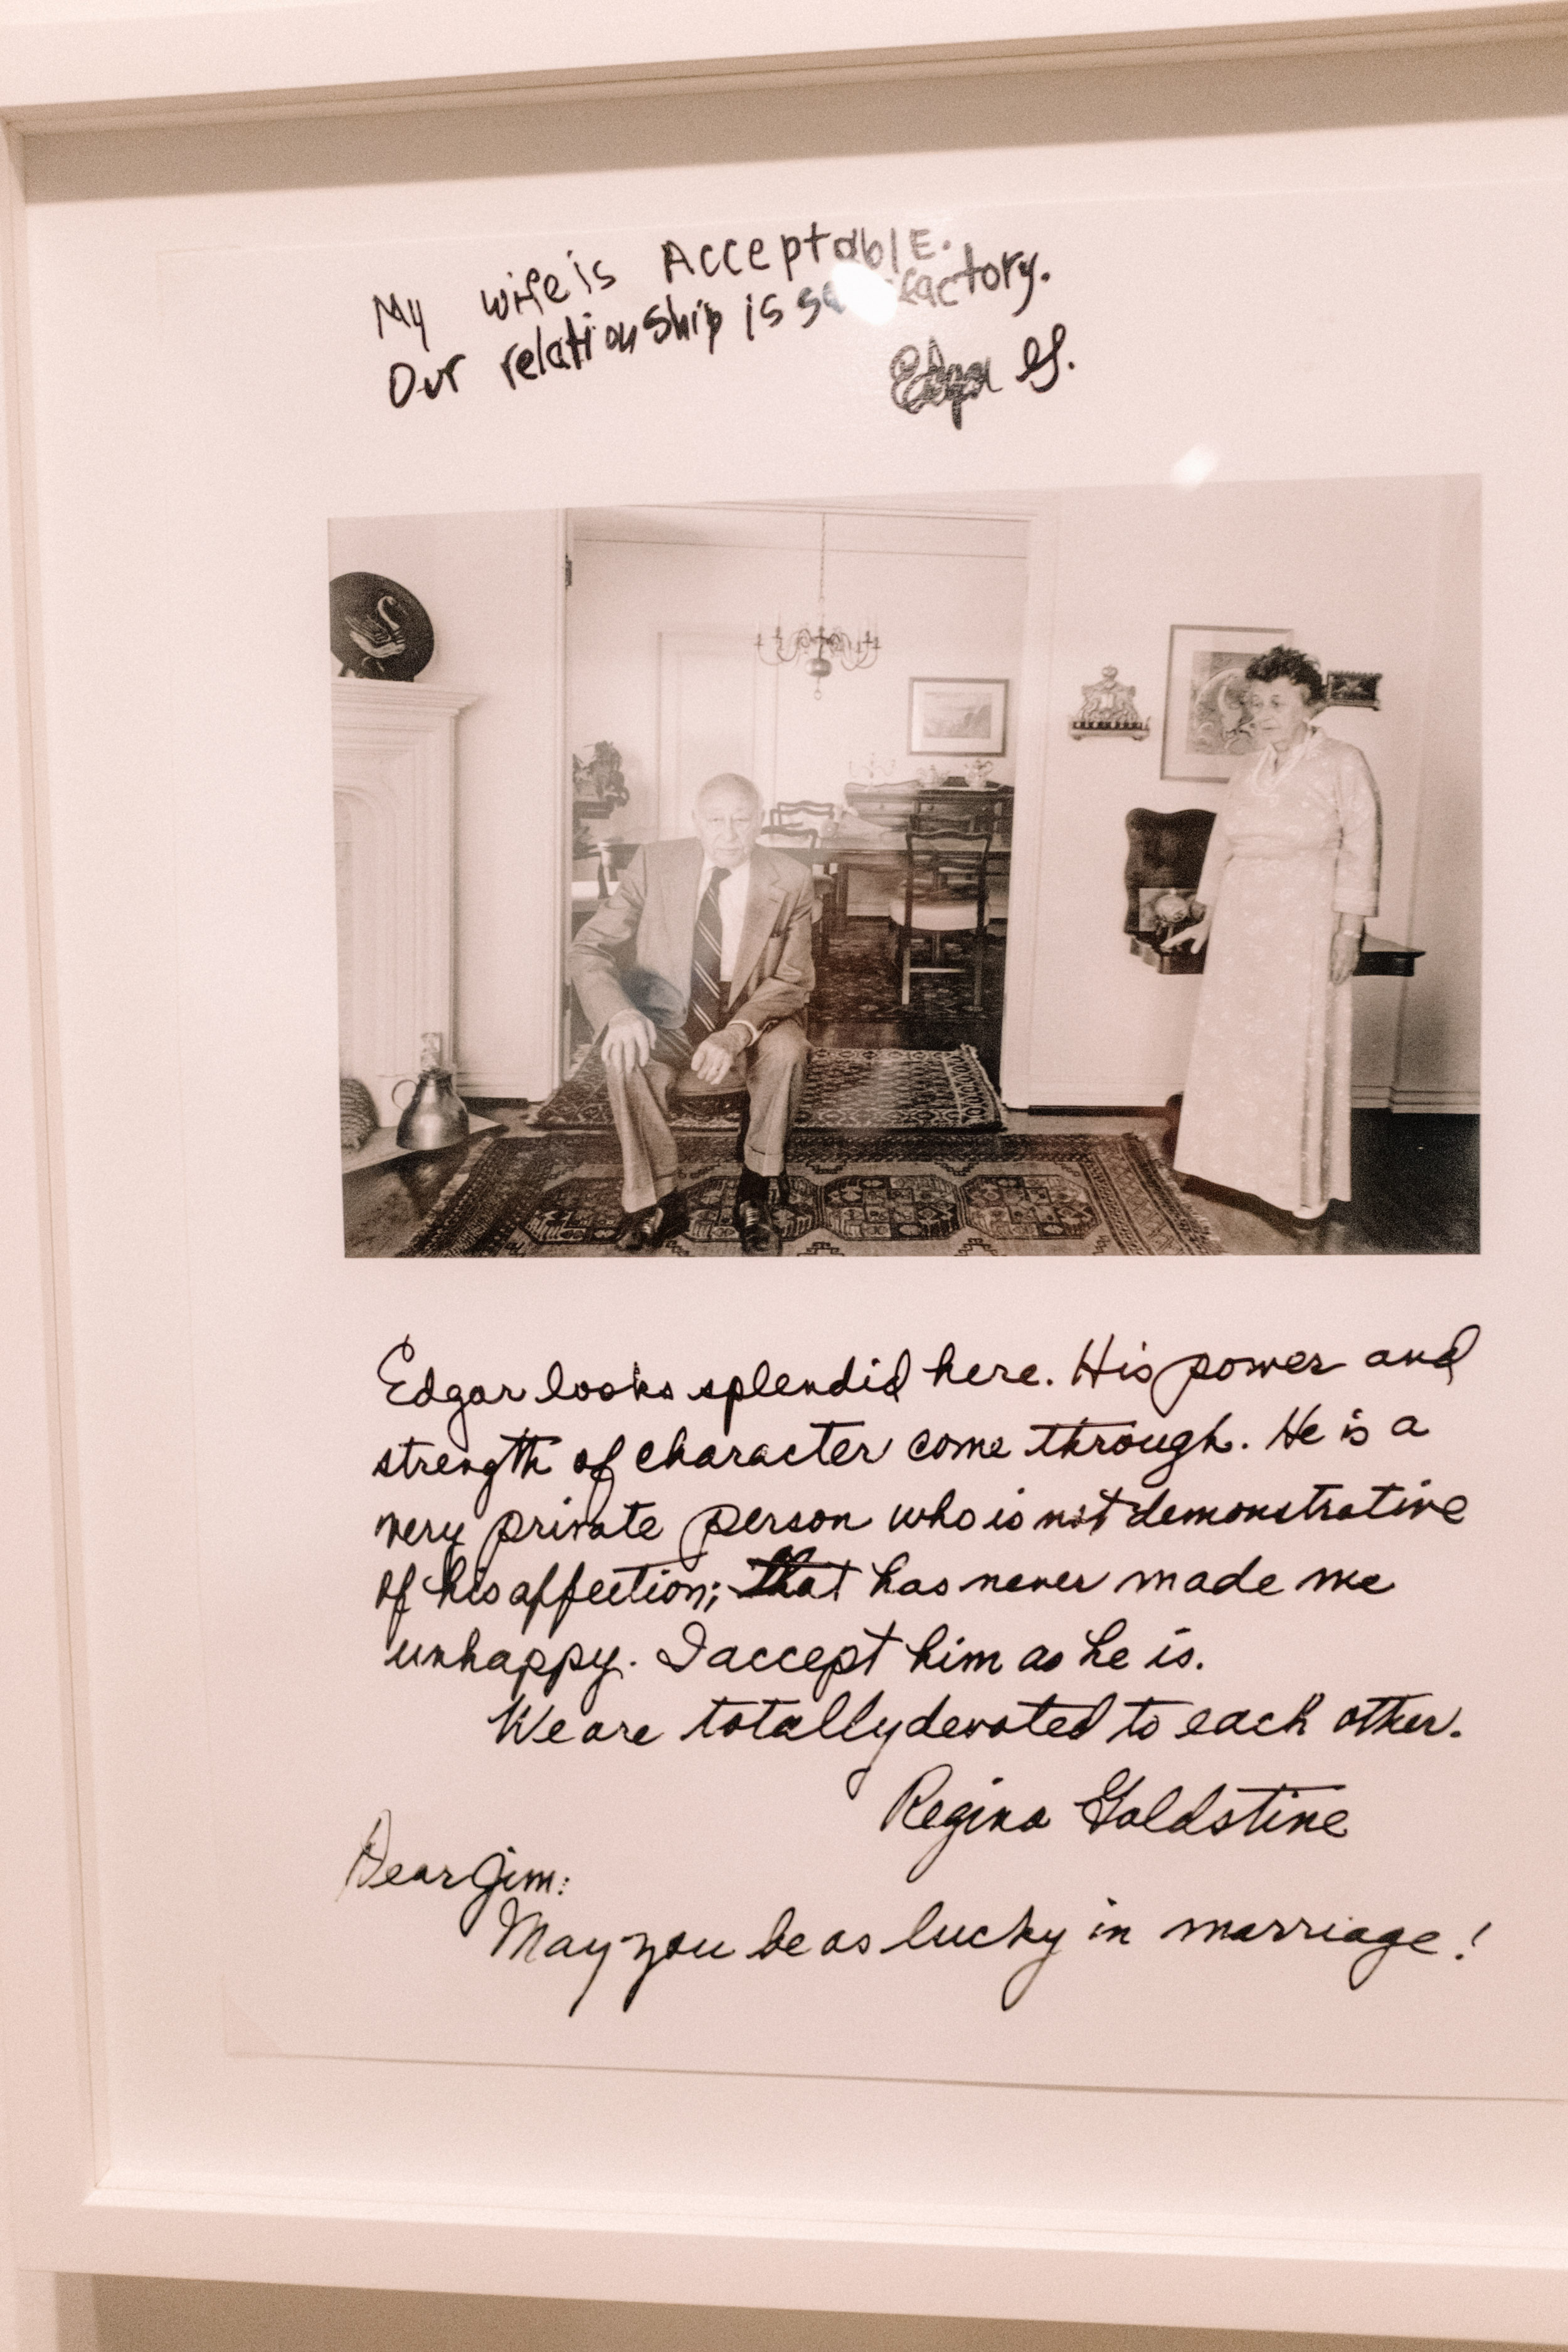 My wife is AcceptablE.
Our relationship is satisfactory.
Edgar G.
Edgar looks splendid here. His power and
strength of character come through. He is a
very private person who is not demonstrative
of his affection; that has never made me
unhappy. I accept him as he is.
We are totally devoted to each other.
Regina Goldstine
Dear Jim:
May you be as lucky in marriage!